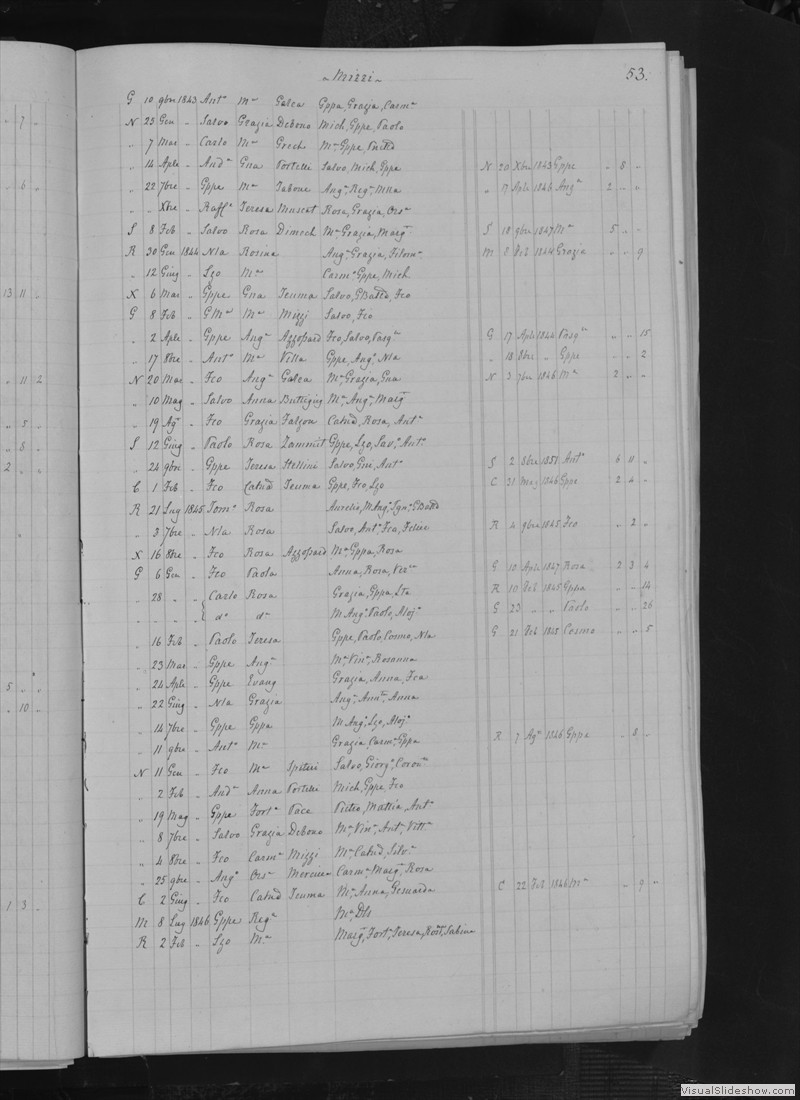 Mizzi
53.
G 10 9bre 1843 Ant.º M.ª Galea Gppa, Grazia, Carm.ª
N 25 Gen " Salvo Grazia Debono Mich, Gppe, Paolo
" 7 Mar " Carlo M.ª Grech M.ª Gppe,
" 14 Aple " And.ª Gna Portelli Salvo, Mich, Gppe N 20 Xbre 1843 Gppe " 8 "
" 22 7bre " Gppe M.ª Tabone Ang.ª, Reg.ª, Mna " 17 Aple 1846 Ang.ª 2 " "
" " Xbre " Raff.ª Teresa Muscat Rosa, Grazia, Ors.ª
S 8 Feb " Salvo Rosa Dimech M.ª Grazia, Marg.ª S 18 9bre 1847 M.ª 5 " "
R 30 Gen 1844 Nla Rosina Ang.ª, Grazia, Filom.ª M 8 1844 Grazia " " 9
" 12 Giug " Lzo M.ª Carm.º, Gppe, Mich
X 6 Mar " Gppe Gna Teuma Salvo, GBatta, Fco
G 8 Feb " GM.ª M.ª Mizzi Salvo, Fco
" 2 Aple " Gppe Ang.ª Azzopard Fco, Salvo, Pasq.ª G 17 Aple 1844 Pasq.ª " " 15
" 17 8bre " Ant.º M.ª Villa Gppe, Ang.º, Nla " 18 8bre " Gppe " " 2
N 20 Mar " Fco Ang.ª Galea M.ª, Grazia, Gna N 3 7bre 1846 M.ª 2 " "
" 10 Mag " Salvo Anna Buttigieg M.ª Ang.ª Marg.ª
" 19 Ag.º " Fco Grazia Falzon Catnd, Rosa, Ant.ª
S 12 Giug " Paolo Rosa Zammit Gppe, Lzo, Sav.º, Ant.º
" 24 9bre " Gppe Teresa Stellini Salvo, Gni, Ant.º S 2 8bre 1851 Ant.º 6 11 "
C 1 Feb " Fco Catnd Teuma Gppe, Fco, Lzo C 31 Mag 1846 Gppe 2 4 "
R 21 Lug 1845 Tom.º Rosa Aurelio, M Ang.º, Ign.º, GBatta
" 3 7bre " Nla Rosa Salvo, Ant.º, Fco, Felice R 4 9bre 1845 Fco " 2 "
X 16 8bre " Fco Rosa Azzopard M.ª Gppa, Rosa
G 6 Gen " Fco Paola Anna, Rosa, G 10 Aple 1847 Rosa 2 3 4
" 28 " " Carlo Rosa Grazia, Gppa, R 10 Feb 1845 Gppa " " 14
" " " " d.º d.ª M Ang.ª, Paolo, Aloj.ª G 23 " " Paolo " " 26
" 16 Feb " Paolo Teresa Gppe, Paolo, Cosmo, Nla G 21 Feb 1845 Cosmo " " 5
" 23 Mar " Gppe Ang.ª M.ª Vin.ª, Rosanna
" 24 Aple " Gppe Evang Grazia, Anna, Fca
" 22 Giug " Nla Grazia Ang.º, Annto, Anna
" 14 7bre " Gppe Gppa M Ang.º, Lzo, Aloj.º
" 11 9bre " Ant.º M.ª Grazia, Carm.ª, Gppa R 7 Ag.º 1846 Gppa " 8 "
N 11 Gen " Fco M.ª Spiteri Salvo, Giorg.º, Coron.º
" 2 Feb " And.ª Anna Portelli Mich, Gppe, Fco
" 19 Mag " Gppe Fort.ª Pace Pietro, Mattia, Ant.º
" 8 7bre " Salvo Grazia Debono M.ª Vin.ª, Ant.ª, Vitt.ª
" 4 8bre " Fco Carm.ª Mizzi M.ª Catnd, Silv.ª
" 25 9bre " Ang.º Ors.ª Mercieca Carm.ª, Marg.ª, Rosa
C 2 Giug " Fco Catnd Teuma M.ª Anna, Genarda C 22 Feb 1846 M.ª " 9 "
M 8 Lug 1846 Gppe Reg.ª M.ª, Dls
R 2 Feb " Lzo M.ª Marg.ª, Fort.ª, Teresa, Sabina
VisualSlideshow.com